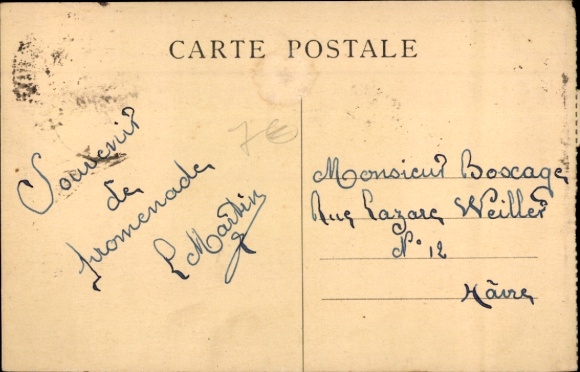 CARTE POSTALE
7€
Souvenir
de
promenade
L Martin
Monsieur Boscage
Rue Lazare Weiller
N° 12
Hâvre